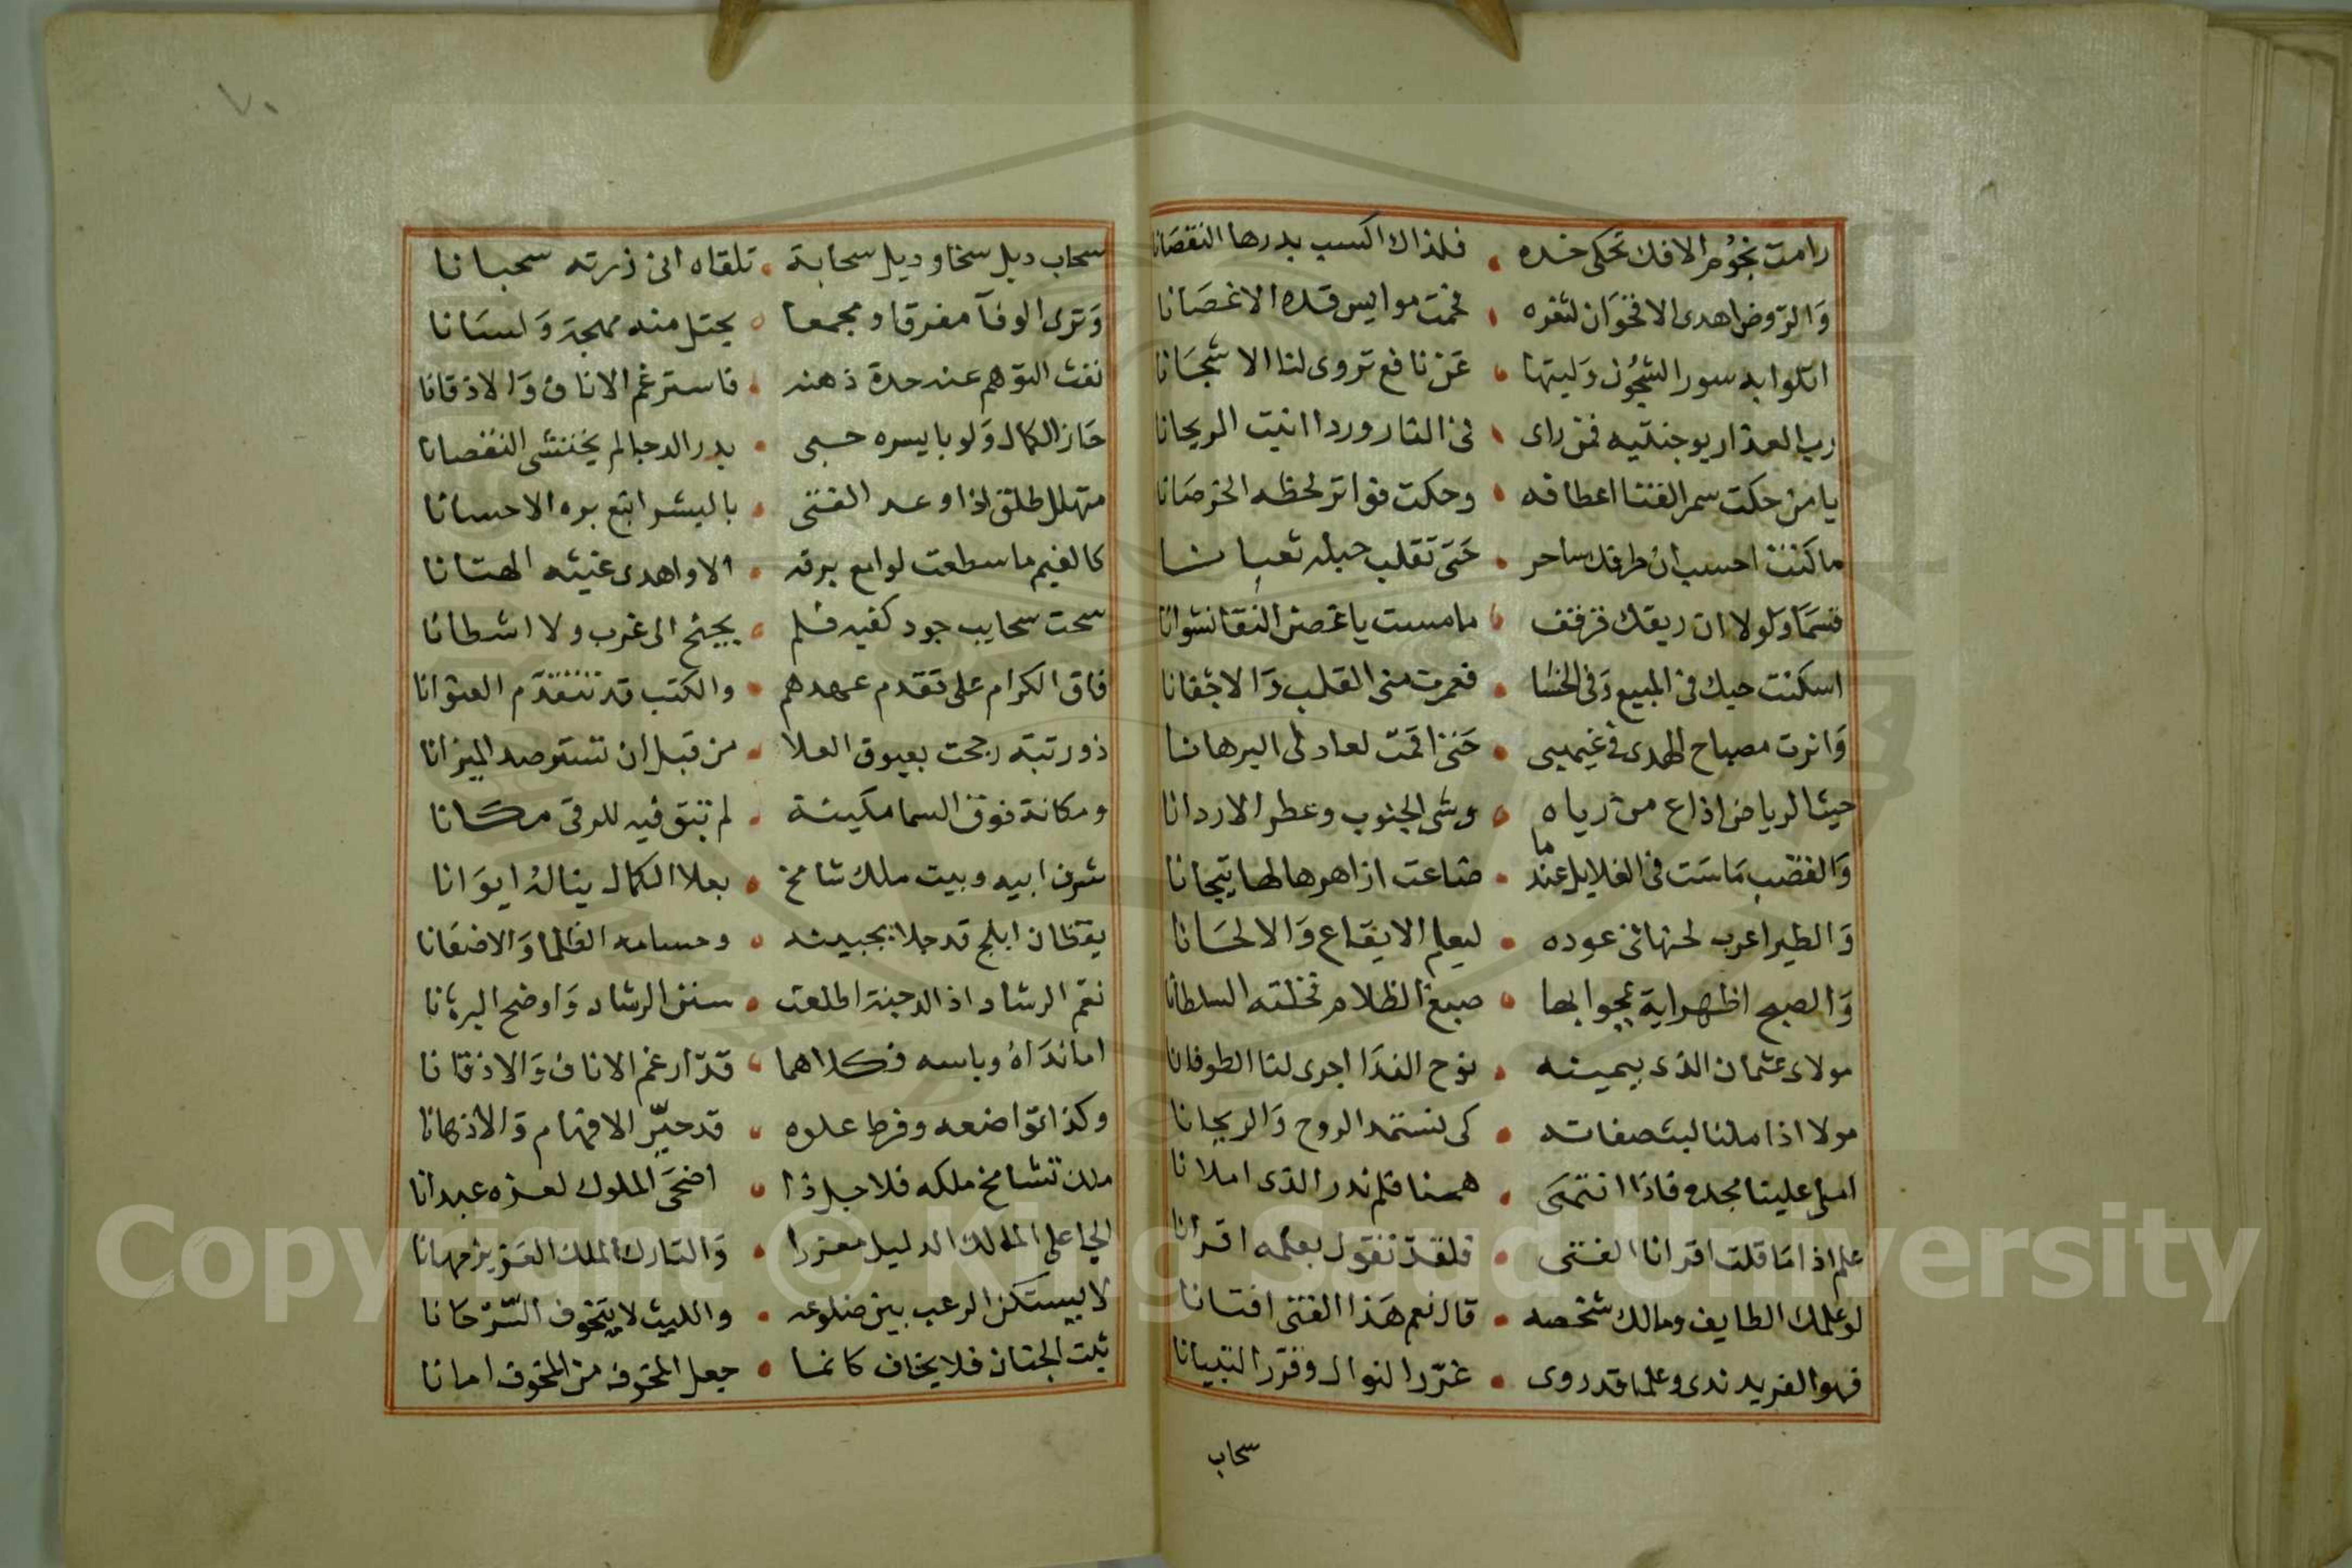 رامت نجوم الافك تحكى خده • فلذاك اكسب بدرها النقصانا
والروض اهدى الاقحوان لثغره • فحمت موايس قده الاغصانا
اتلوا به سور الشجون وليتها • عن نافع تروى لنا الاشجانا
رب العذار بوجنتيه فمن راى • فى النار وردا انبت الريحانا
يا من حكت سمر القنا اعطافه • وحكت فواتر لحظه الخرصانا
ما كنت احسب ان طرفك ساحر • حتى تقلب حبله ثعبانا
قسما ولولا ان ريقك قرقف • ما مست يا غصن النقا نشوانا
اسكنت حبك فى المبيع وفى الحشا • فعمرت منى القلب والاجفانا
وانرت مصباح الهدى فى غيهبى • حتى اقمت لعاذلى البرهانا
حيث الرياض اذاع من رياه • وشى الجنوب وعطر الاردانا
والقضب ماست فى الغلايل عندما • ضاعت ازاهرها لها تيجانا
والطير اعرب لحنها فى عوده • ليعلم الايقاع والالحانا
والصبح اظهر اية عجوا بها • صبغ الظلام فخلته السلطانا
مولاى عثمان الذى بيمينه • نوح الندا اجرى لنا الطوفانا
مولا اذا ملنا لبث صفاته • كى نستمد الروح والريحانا
املى علينا مجده فاذا انتهى • همنا فلم ندر الذى املانا
علم اذا ما قلت اقرانا الفتى • فلقد تقول بعلمه اقرانا
لو علمك الطايف ومالك شخصه • قال نعم هذا الفتى افتانا
فهو الفريد ندى وعلما قد روى • غرر النوال وقرر التبيانا
سحاب
٧٠
سحاب ديل سخا وديل سحابة • تلقاه ان زرته سحبانا
وترى الوفآ مفرقا ومجمعا • يحتل منه مهجة ولسانا
نفث التوهم عنه حدة ذهنه • فاسترغم الاناف والاذقانا
حاز الكمال ولو بايسره حبى • بدر الدجا لم يختشى النقصانا
متهلل طلق اذا وعد الفتى • بالبشر اتبع بره الاحسانا
كالغيم ما سطعت لوامع برقه • الا واهدى غيثه الهتانا
سحت سحايب جود كفيه فلم • يجنح الى غرب ولا اشطانا
فاق الكرام على تقدم عهدهم • والكتب قد تتقدم العنوانا
ذو رتبة رجحت بعيوق العلا • من قبل ان تستوصد الميزانا
ومكانة فوق السما مكينة • لم تبق فيه للرقى مكانا
شرف ابيه وبيت ملك شامخ • بعلا الكمال يناله ايوانا
يقظان ابلج قد جلا بجبينه • وحسامه الظلما والاضغانا
نعم الرشاد اذ الدجنة اطلعت • سنن الرشاد واوضح البرهانا
اما نداه وباسه فكلاهما • قد ارغم الاناف والاذقانا
وكذا تواضعه وفرط علوه • قد حير الافهام والاذهانا
ملك تشامخ ملكه فلاجل ذا • اضحى الملوك لعزه عبدانا
الجاعل الملك الدليل معززا • والتارك الملك العزيز مهانا
لا يستكن الرعب بين ضلوعه • والليث لا يتخوف السرحانا
ثبت الجنان فلا يخاف كانما • جعل المخوف من المخوف امانا
Copyright © King Saud University